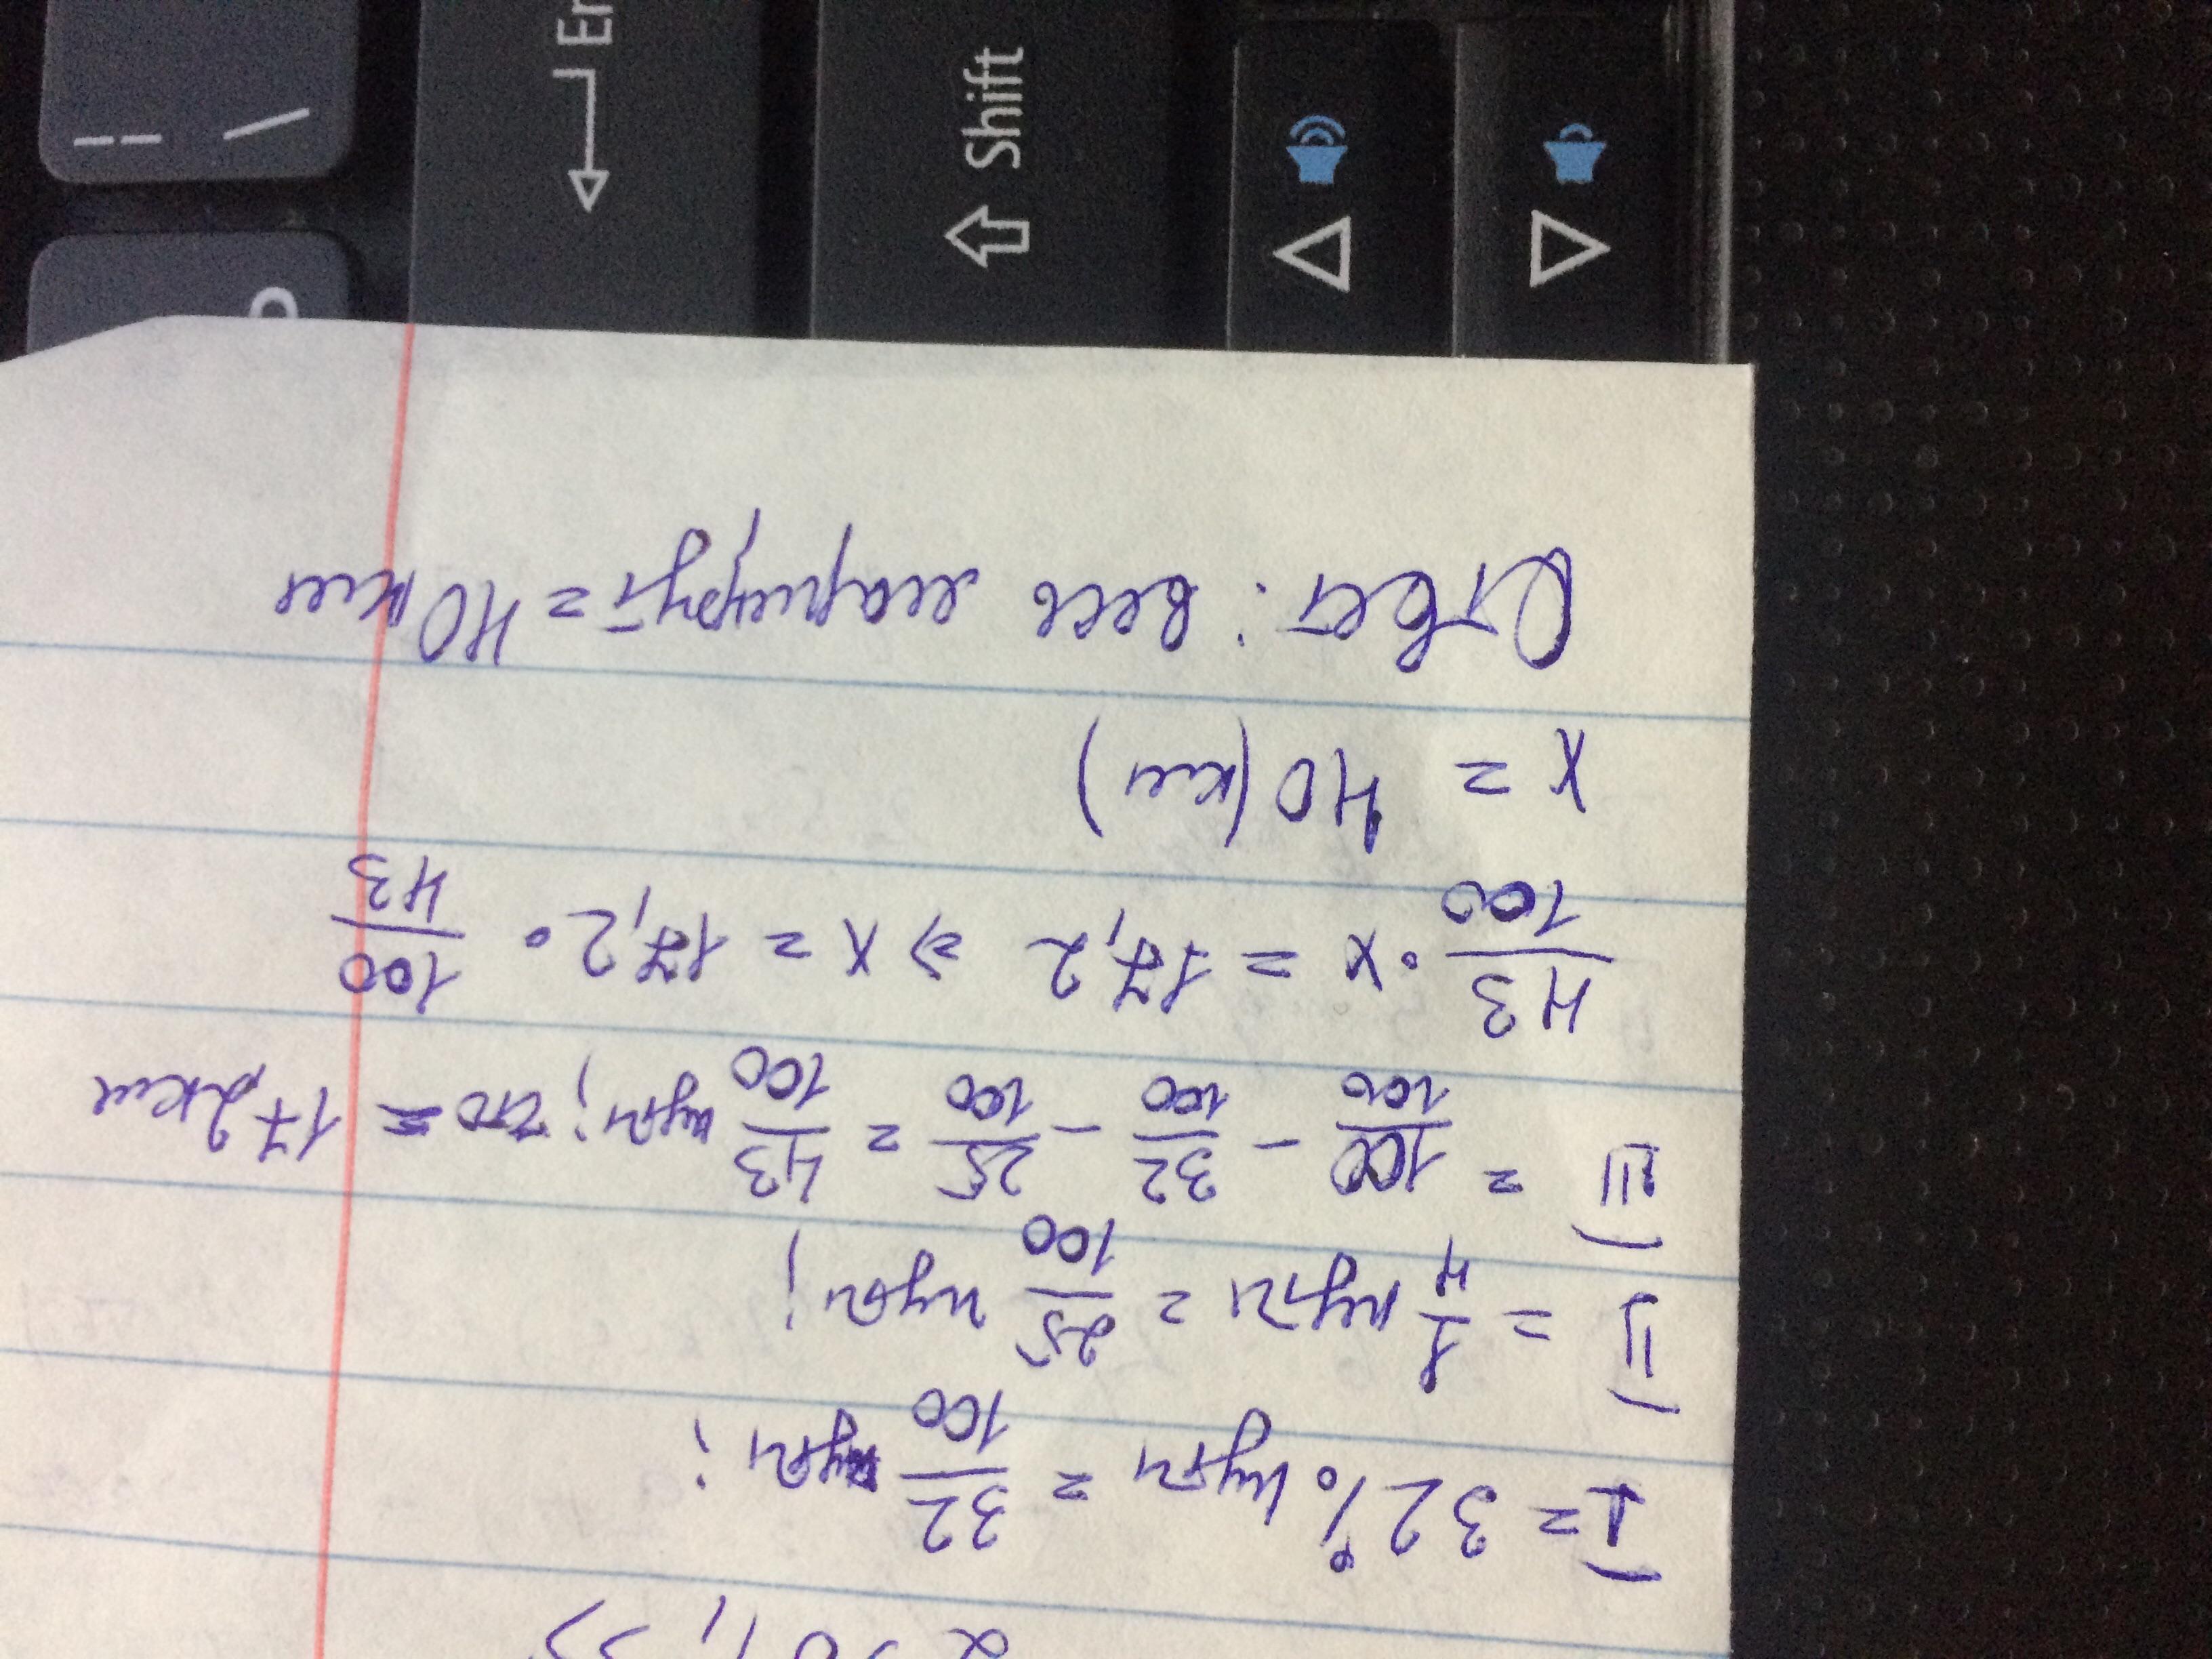 I = 32% пути = 32/100 пути;
II = 1/4 пути = 25/100 пути;
III = 100/100 - 32/100 - 25/100 = 43/100 пути; это = 17,2км
43/100 · x = 17,2 => x = 17,2 · 100/43
x = 40 (км)
Ответ: весь маршрут = 40км
Shift